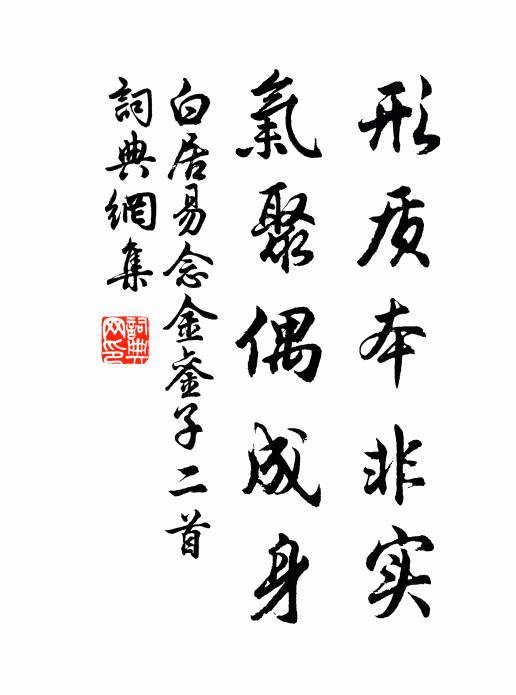 形质本非实
氣聚偶成身
白居易念金銮子二首
詞典網集
詞典网印